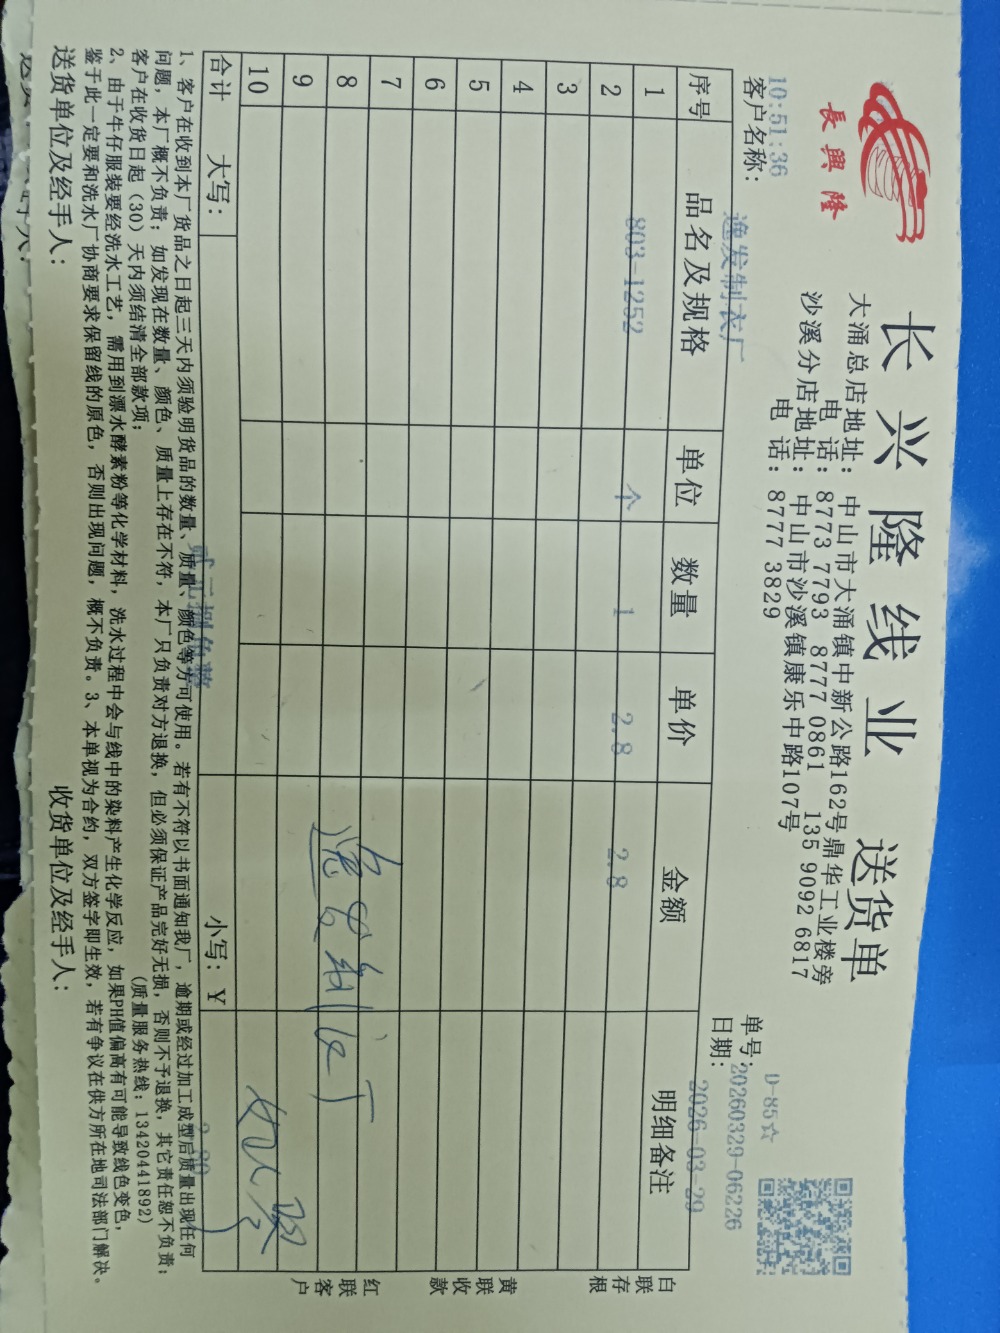 長興隆
长兴隆线业 送货单
大涌总店地址：中山市大涌镇中新公路162号鼎华工业楼旁
电 话：8773 7793 8777 0861 135 9092 6817
沙溪分店地址：中山市沙溪镇康乐中路107号
电 话：8777 3829
D-85☆
单号：20260329-06226
日期：2026-03-29
10:51:36
客户名称：逸发制衣厂
序号 品名及规格 单位 数量 单价 金额 明细备注
1 803-1252 个 1 2.8 2.8
2
3
4
5
6
7
8
9
10
制衣厂
合计 大写： 贰元捌角整 小写：￥ 2.80
白联存根
黄联收款
红联客户
1、客户在收到本厂货品之日起三天内须验明货品的数量、质量、颜色等方可使用。若有不符以书面通知我厂，逾期或经过加工成型后质量出现任何
问题，本厂概不负责；如发现在数量、颜色、质量上存在不符，本厂只负责对方退换，但必须保证产品完好无损，否则不予退换，其它责任恕不负责；
客户在收货日起（30）天内须结清全部款项； （质量服务热线：13420441892）
2、由于牛仔服装要经洗水工艺，需用到漂水酵素粉等化学材料，洗水过程中会与线中的染料产生化学反应，如果PH值偏高有可能导致线色变色，
鉴于此一定要和洗水厂协商要求保留线的原色，否则出现问题，概不负责。3、本单视为合约，双方签字即生效，若有争议在供方所在地司法部门解决。
送货单位及经手人： 收货单位及经手人：